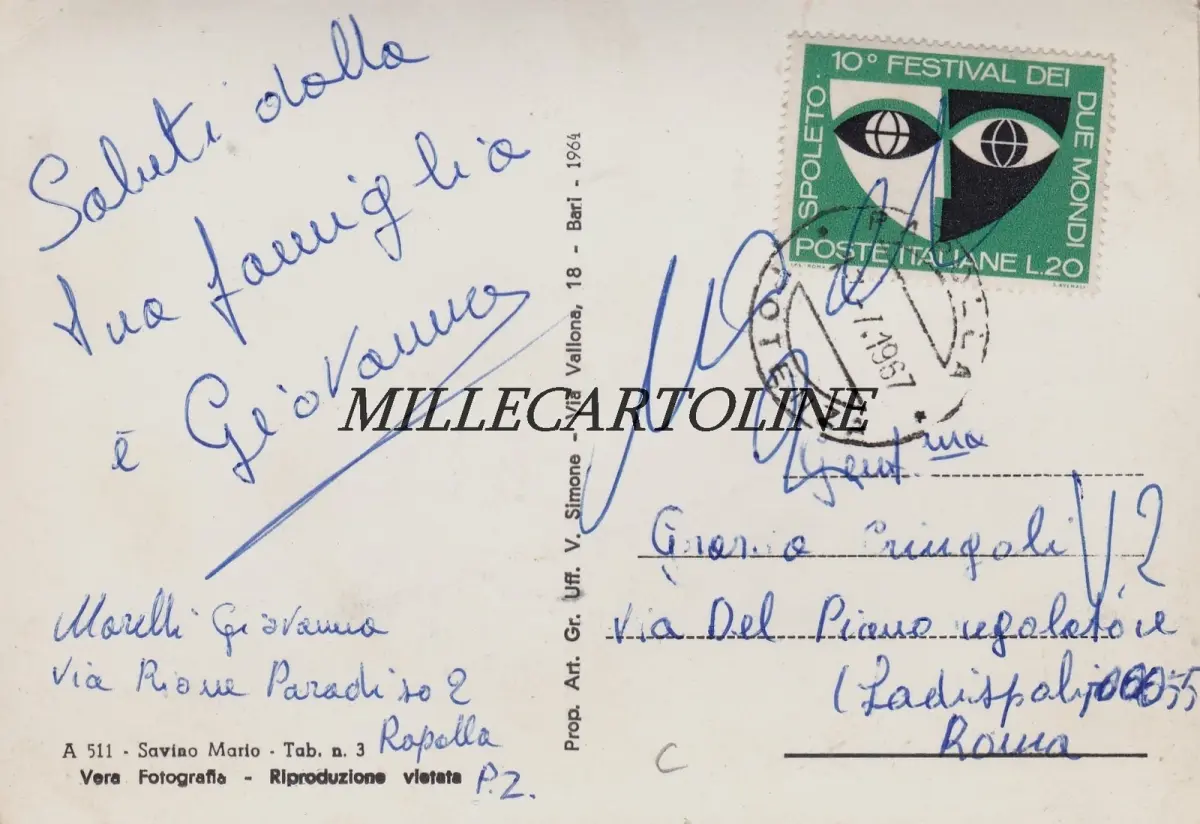 Saluti dalla
tua famiglia
e Giovanna
Morelli Giovanna
Via Rione Paradiso 2
Rapolla
P.Z.
A 511 - Savino Mario - Tab. n. 3
Vera Fotografia - Riproduzione vietata
Prop. Art. Gr. Uff. V. Simone - Via Vallona, 18 - Bari - 1964
MILLECARTOLINE
SPOLETO . 10° FESTIVAL DEI DUE MONDI
POSTE ITALIANE L.20
7.1967
Gent.ma
Cringoli
Via Del Piano regolatore
(Ladispoli
Roma
C